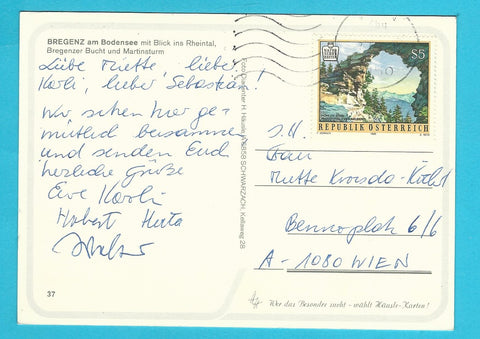 BREGENZ am Bodensee mit Blick ins Rheintal,
Bregenzer Bucht und Martinsturm
Liebe Mutte, lieber
Karli, lieber Sebastian!
Wir sitzen hier ge-
mütlich beisammen
und senden Euch
herzliche Grüße
Eure Karoli
Herta
37
A-6858 SCHWARZACH, Kellaweg 28
S5
REPUBLIK ÖSTERREICH
Frau
Mutte
Bennoplatz 6/6
A - 1080 WIEN
Wer das Besondre sucht - wählt Häusle-Karten!